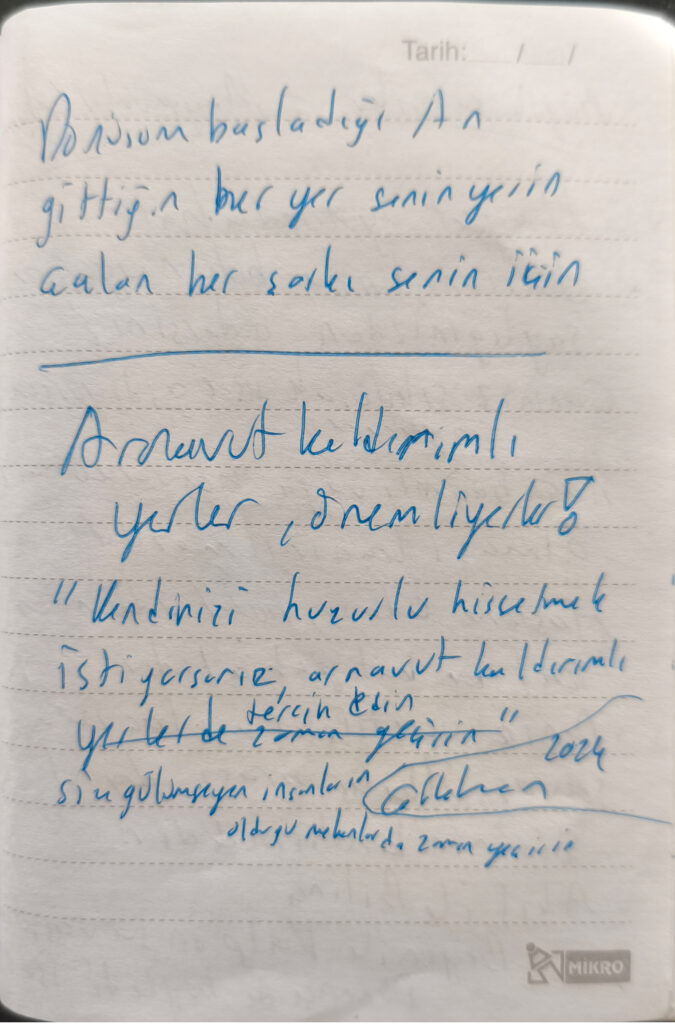 Tarih: / /
Dönüşüm başladığı An
gittiğin her yer senin yerin
çalan her şarkı senin için
Arnavut kaldırımlı
yerler, önemli yerler!
"Kendinizi huzurlu hissetmek
istiyorsanız, arnavut kaldırımlı
tercih edin
yerlerde zaman geçirin"
2024
size gülümseyen insanların
olduğu mekanlarda zaman geçirin
MİKRO